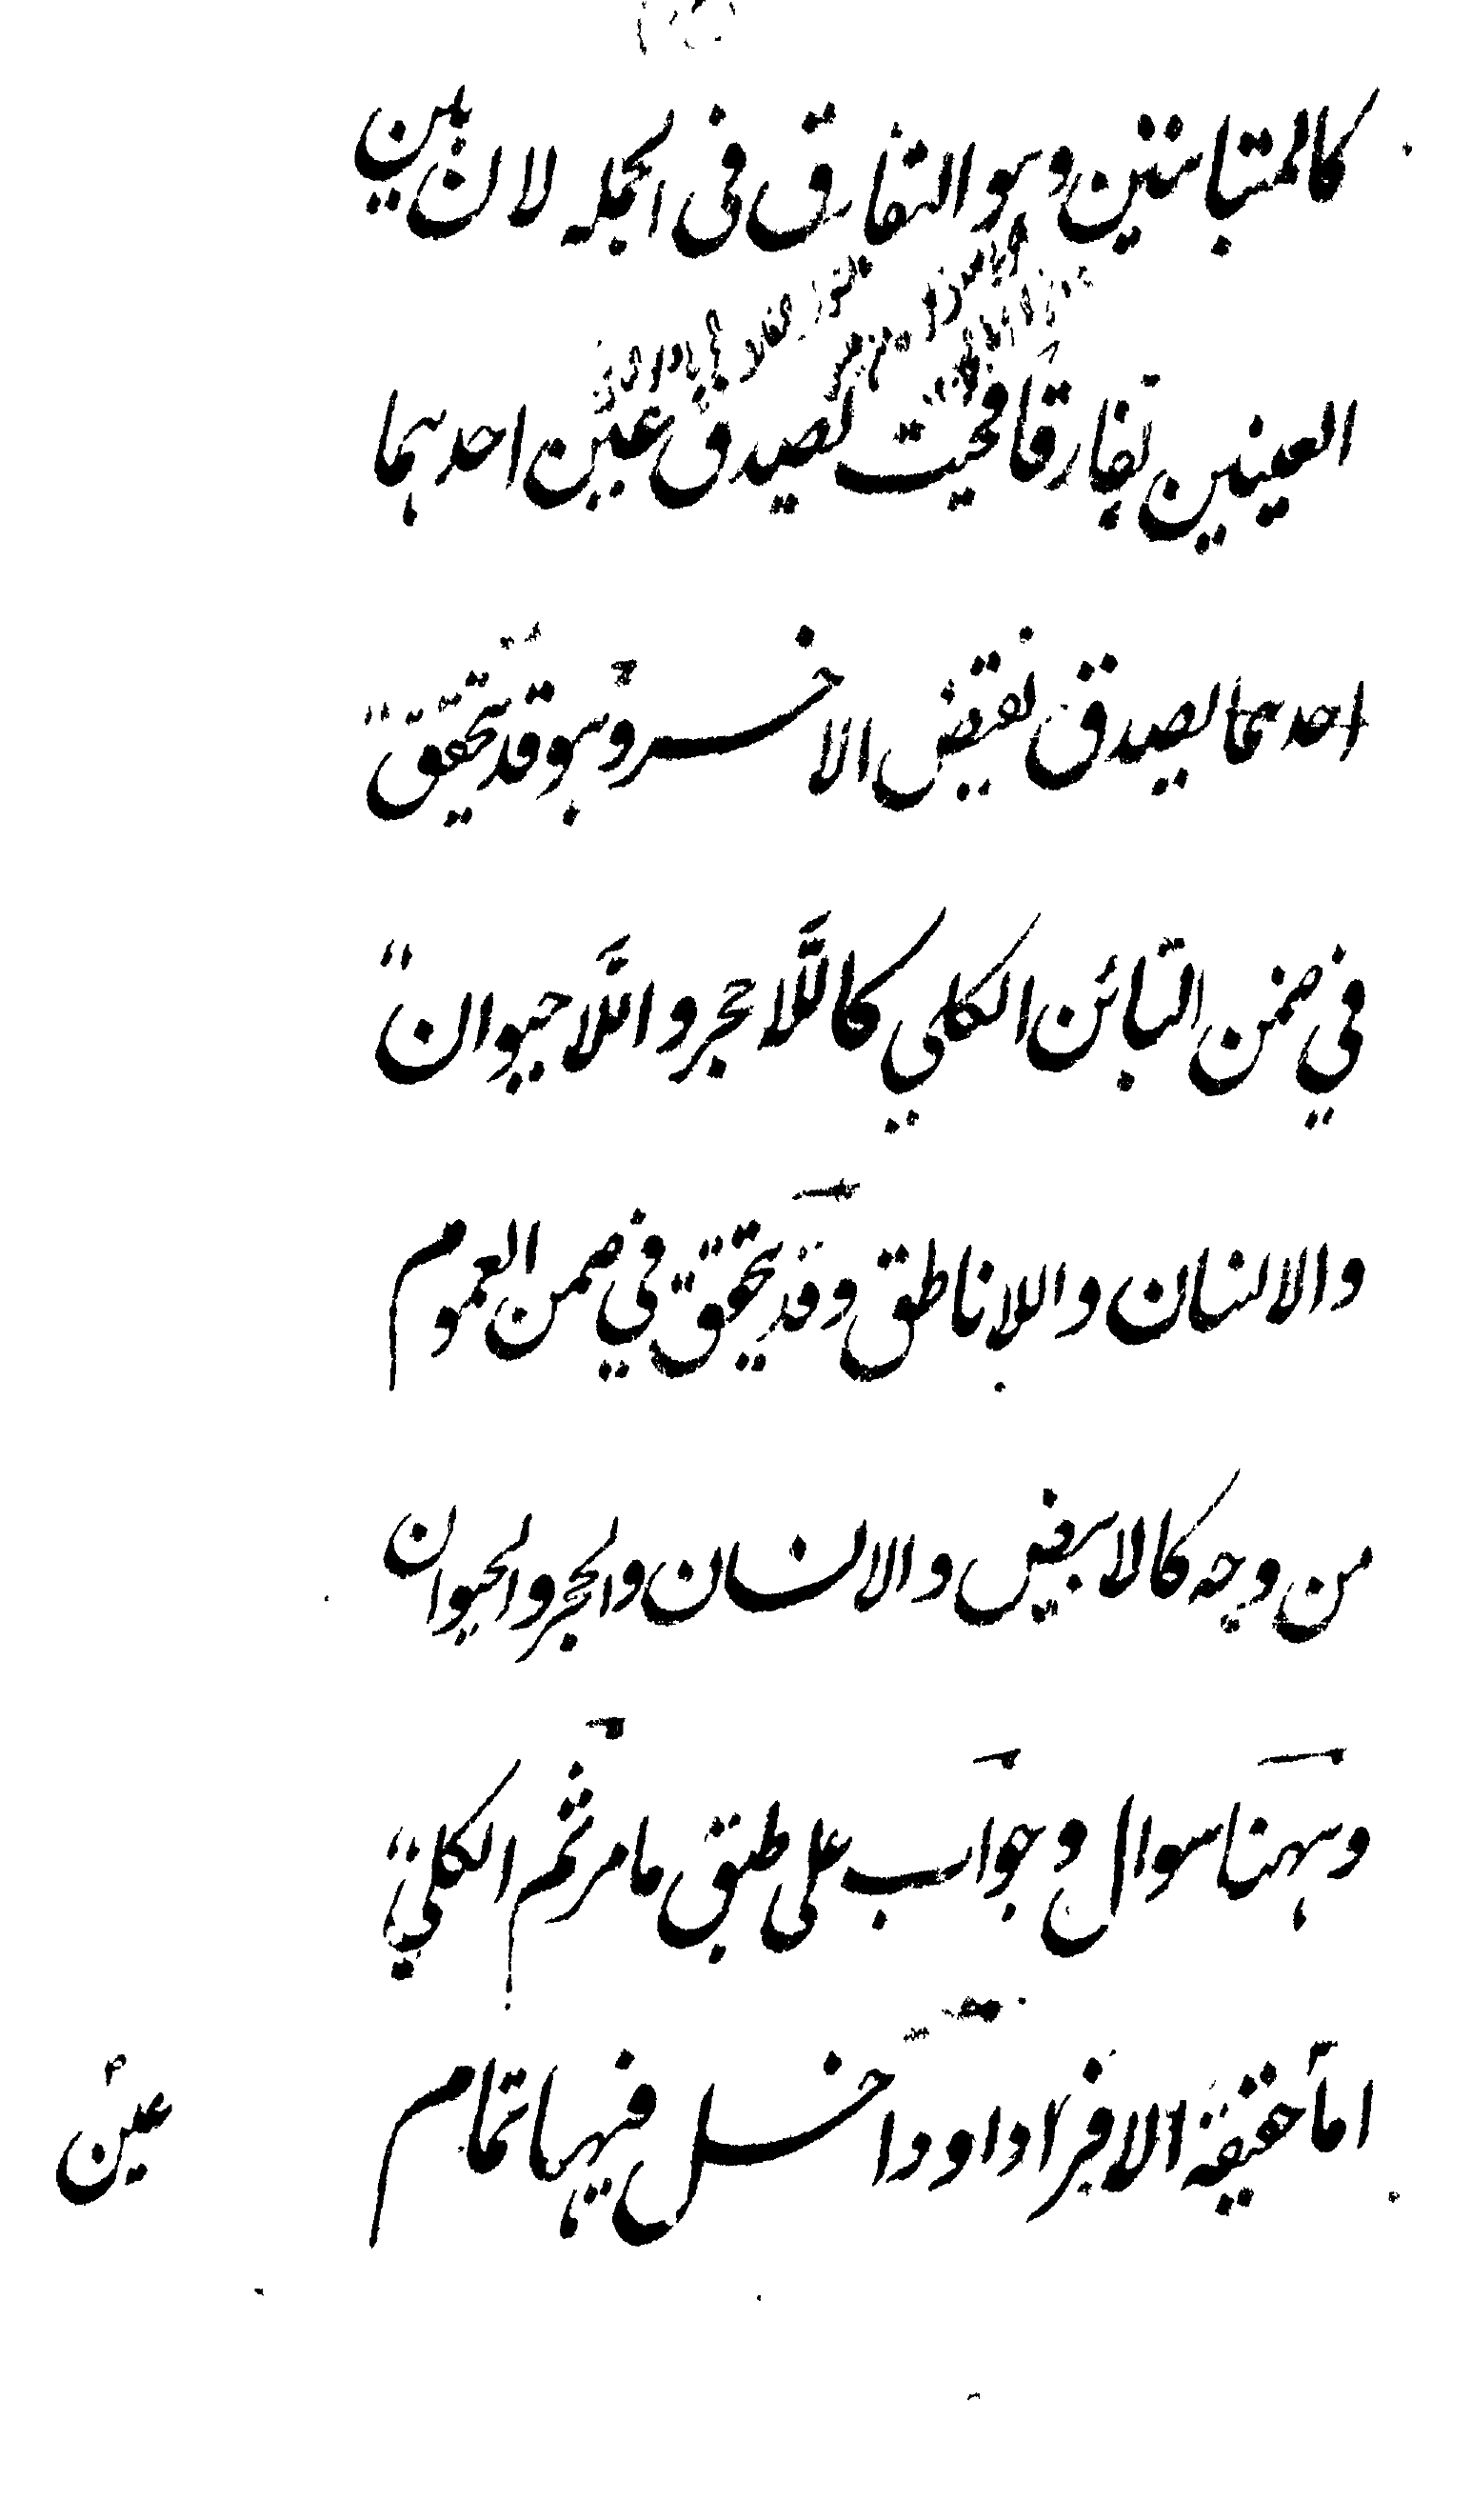 كالمتباينين وهو التفارق فى الجملة لان بين
العينين تفارقا فحيث يصدق عين احدهما
احدهما يصدق نقيض الاخر وهو قد يتحقق
في ضمن التباين الكلي كاللاحجر واللاحيوان
والانسان واللاناطق وقد يتحقق في ضمن العموم
من وجه كالابيض والانسان والحجر والحيوان
وههنا سوال وجواب على طبق ما مر ثم الكلي
اما حقيقة الافراد او داخل فيها تمام
عين